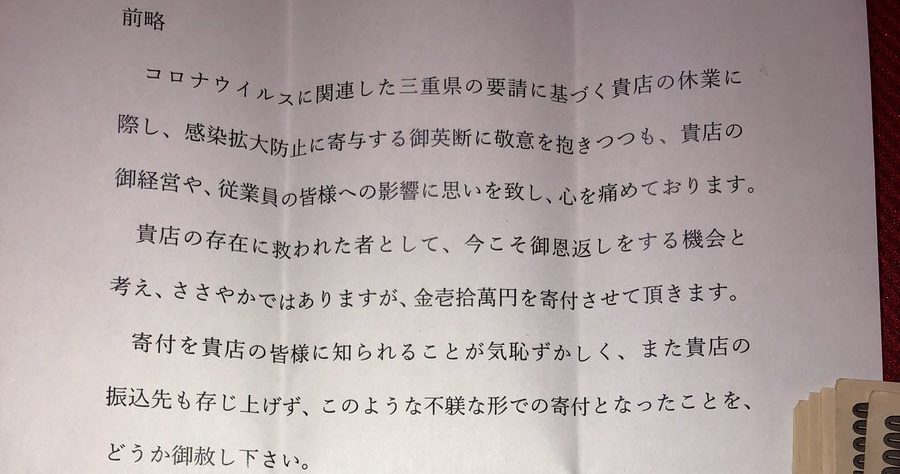 前略
コロナウイルスに関連した三重県の要請に基づく貴店の休業に
際し、感染拡大防止に寄与する御英断に敬意を抱きつつも、貴店の
御経営や、従業員の皆様への影響に思いを致し、心を痛めております。
貴店の存在に救われた者として、今こそ御恩返しをする機会と
考え、ささやかではありますが、金壱拾萬円を寄付させて頂きます。
寄付を貴店の皆様に知られることが気恥ずかしく、また貴店の
振込先も存じ上げず、このような不躾な形での寄付となったことを、
どうか御赦し下さい。